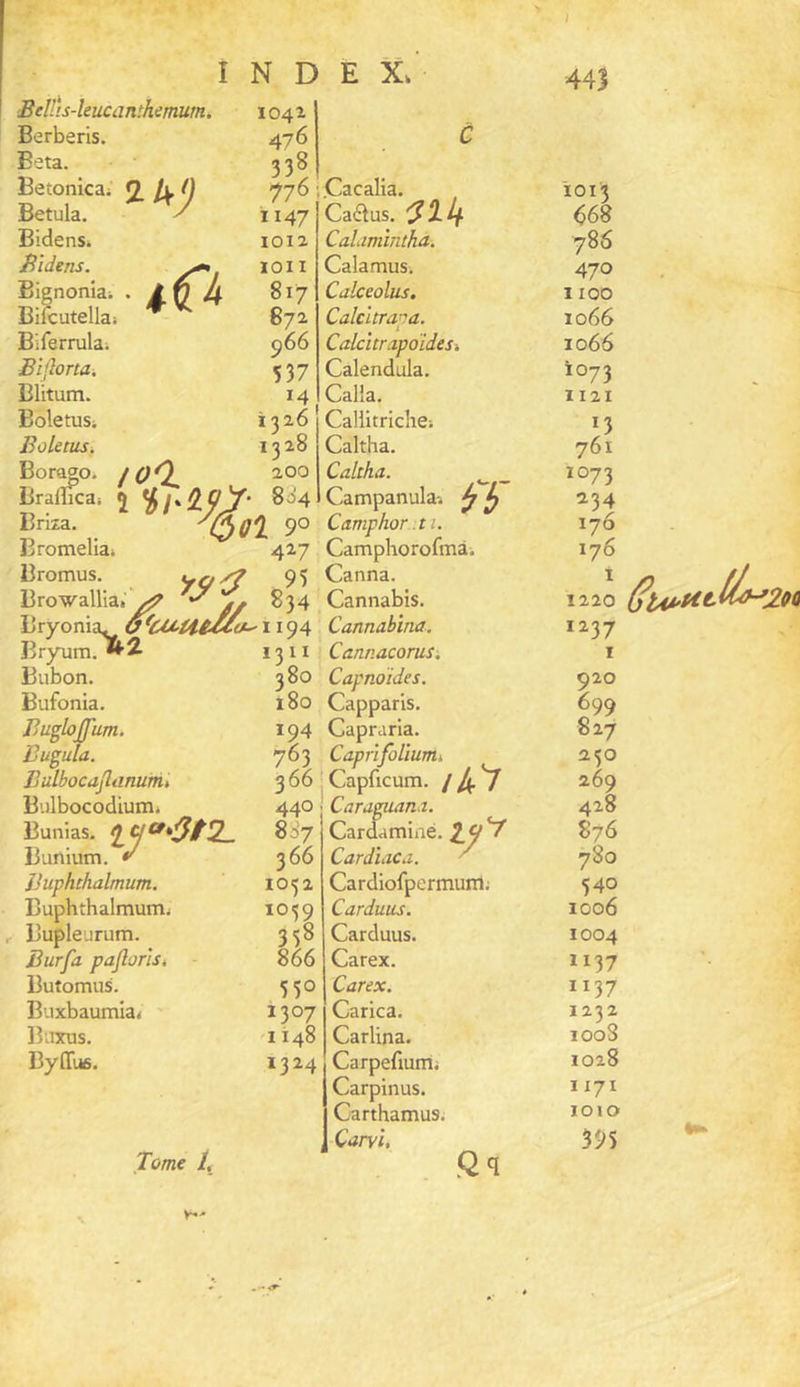 INDEX. 443
Bellis-leucanthemum. 1042
Berberis. 476
Beta. 338
Betonica. 249 776
Betula. 1147
Bidens. 1012
Bidens. 1011
Bignonia. . 464 817
Biſcutella. 872
Biferrula. 966
Biſtorta. 537
Blitum. 14
Boletus. 1326
Boletus. 1328
Borago. 102 200
Braſſica. 884
Briza. 90
Bromelia. 427
Bromus. 95
Browallia. 834
Bryonia. 1194
Bryum. 42 1311
Bubon. 380
Bufonia. 180
Bugloſſum. 194
Bugula. 763
Bulbocaſtanum. 366
Bulbocodium. 440
Bunias. 887
Bunium. 366
Buphthalmum. 1052
Buphthalmum. 1059
Bupleurum. 358
Burſa paſtoris. 866
Butomus. 550
Buxbaumia. 1307
Buxus. 1148
Byſſus. 1324
Tome I.
C
Cacalia. 1013
Cactus. 324 668
Calamintha. 786
Calamus. 470
Calceolus. 1100
Calcitrapa. 1066
Calcitrapoïdes. 1066
Calendula. 1073
Calla. 1121
Callitriche. 13
Caltha. 761
Caltha. 1073
Campanula. 55 234
Camphorata. 176
Camphoroſma. 176
Canna. 1
Cannabis. 1220
Cannabina. 1237
Cannacorus. 1
Capnoïdes. 920
Capparis. 699
Capraria. 827
Caprifolium. 250
Capſicum. 147 269
Caraguana. 428
Cardamine. 297 876
Cardiaca. 780
Cardioſpermum. 540
Carduus. 1006
Carduus. 1004
Carex. 1137
Carex. 1137
Carica. 1232
Carlina. 1008
Carpeſium. 1028
Carpinus. 1171
Carthamus. 1010
Carvi. 395
Qq